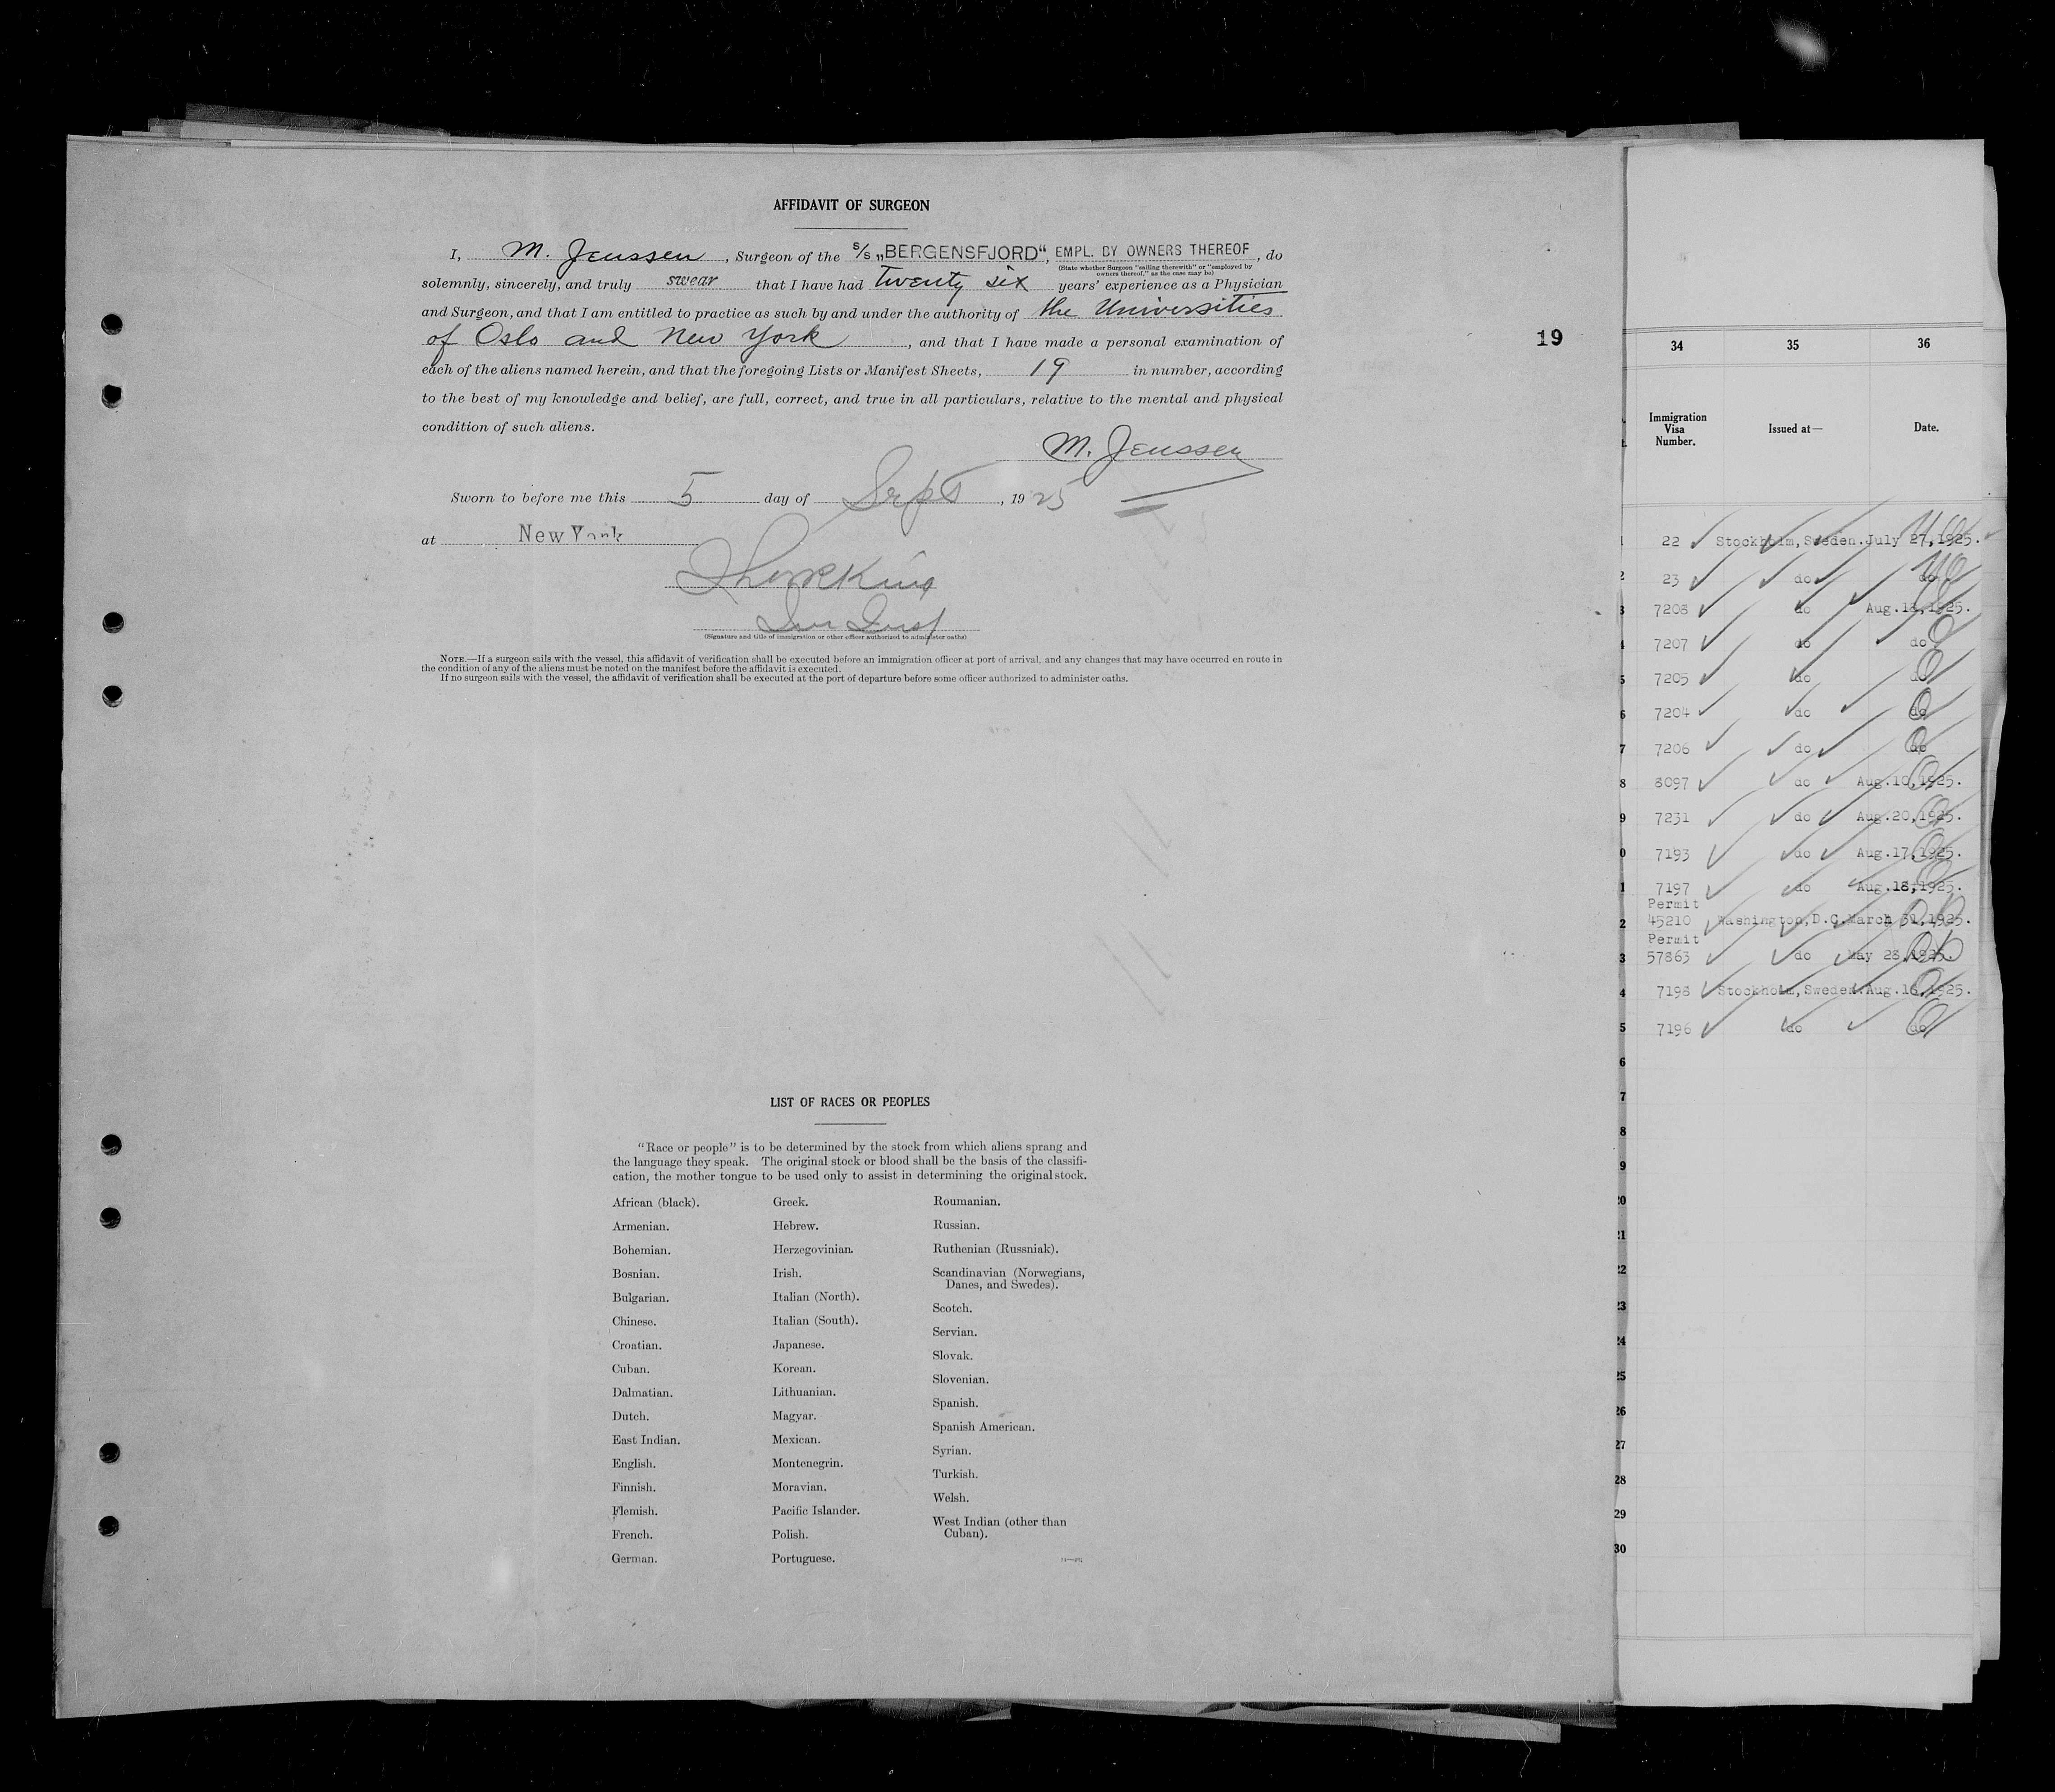 AFFIDAVIT OF SURGEON
I, M. Jenssen, Surgeon of the S/S „BERGENSFJORD“, EMPL. BY OWNERS THEREOF, do
(State whether Surgeon "sailing therewith" or "employed by
owners thereof," as the case may be)
solemnly, sincerely, and truly swear that I have had twenty six years' experience as a Physician
and Surgeon, and that I am entitled to practice as such by and under the authority of the Universities
of Oslo and New York, and that I have made a personal examination of
each of the aliens named herein, and that the foregoing Lists or Manifest Sheets, 19 in number, according
to the best of my knowledge and belief, are full, correct, and true in all particulars, relative to the mental and physical
condition of such aliens.
M. Jenssen
Sworn to before me this 5 day of Sept, 1925
at New York
Imm Insp
(Signature and title of immigration or other officer authorized to administer oaths)
NOTE.—If a surgeon sails with the vessel, this affidavit of verification shall be executed before an immigration officer at port of arrival, and any changes that may have occurred en route in
the condition of any of the aliens must be noted on the manifest before the affidavit is executed.
If no surgeon sails with the vessel, the affidavit of verification shall be executed at the port of departure before some officer authorized to administer oaths.
19
LIST OF RACES OR PEOPLES
"Race or people" is to be determined by the stock from which aliens sprang and
the language they speak. The original stock or blood shall be the basis of the classifi-
cation, the mother tongue to be used only to assist in determining the original stock.
African (black).
Armenian.
Bohemian.
Bosnian.
Bulgarian.
Chinese.
Croatian.
Cuban.
Dalmatian.
Dutch.
East Indian.
English.
Finnish.
Flemish.
French.
German.
Greek.
Hebrew.
Herzegovinian.
Irish.
Italian (North).
Italian (South).
Japanese.
Korean.
Lithuanian.
Magyar.
Mexican.
Montenegrin.
Moravian.
Pacific Islander.
Polish.
Portuguese.
Roumanian.
Russian.
Ruthenian (Russniak).
Scandinavian (Norwegians,
Danes, and Swedes).
Scotch.
Servian.
Slovak.
Slovenian.
Spanish.
Spanish American.
Syrian.
Turkish.
Welsh.
West Indian (other than
Cuban).
34 35 36
Immigration
Visa
Number.
Issued at—
Date.
22 Stockholm, Sweden. July 27, 1925.
2 23 do do
3 7208 do Aug.18,1925.
7207 do do
5 7205 do do
6 7204 do do
7 7206 do do
8 8097 do Aug.10,1925.
9 7231 do Aug.20,1925.
0 7193 do Aug.17,1925.
1 7197 do Aug.18,1925.
Permit
2 45210 Washington,D.C. March 31,1925.
Permit
3 57863 do May 28,1925.
4 7198 Stockholm,Sweden. Aug.18,1925.
5 7196 do do
6
7
8
9
20
21
22
23
24
25
26
27
28
29
30